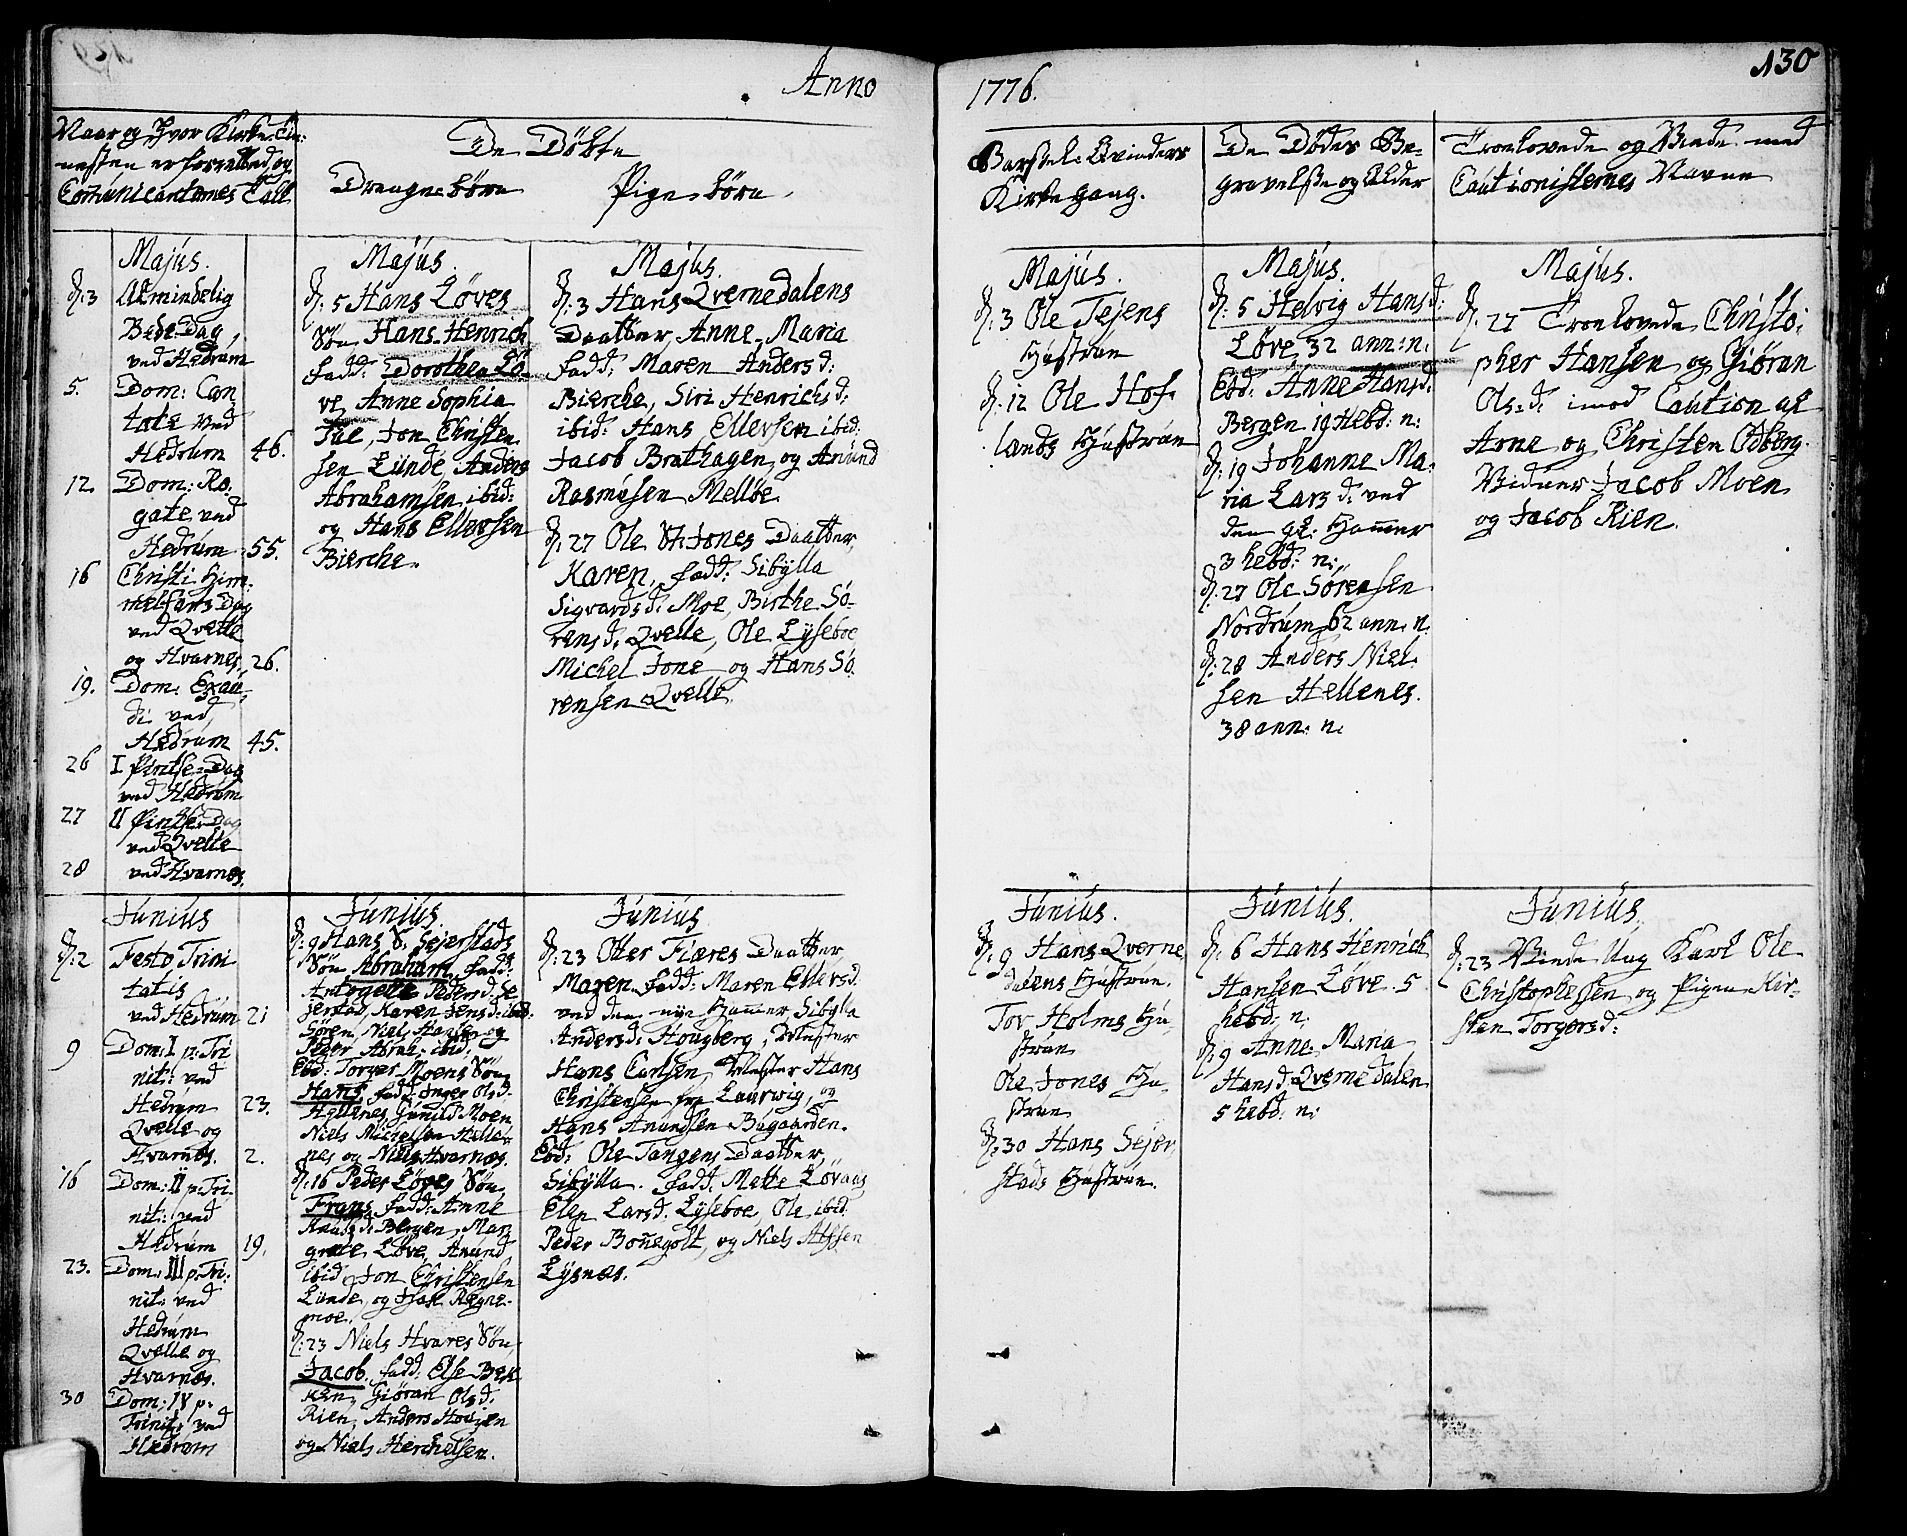 Anno
1776.
130
Naar og Hvor Kirke-Tie-
nesten er forrettet og
Com̄unicanternes Tall
De Døbte
Drenge-børn
Pige-børn
Barsel-Qvinders
Kirkegang.
De Dødes Be-
gravelse og Alder
Troelovede og Viede med
Cautionisternes Navne
Majus.
d: 3 Almindelig
Bede Dag
ved Hedrum
5. Dom: Can
tate ved
Hedrum 46.
12. Dom: Ro-
gate ved
Hedrum 55.
16 Christi Him-
melfarts Dag
ved Qvelle
og Hvarnes 26.
19. Dom: Exau-
di ved
Hedrum 45.
26 I Pintse-Dag
ved Hedrum
27 II Pintse-Dag
ved Qvelle
28 ved Hvarnes.
Majus.
d: 5 Hans Løves
Søn Hans Henrich
fadd: Dorothea Lø-
ve, Anne Sophia
Jon Christen
sen Lunde, Anders
Abrahamsen ibid:
og Hans Ellevsen
Bierche.
Majus.
d: 3 Hans Qvernedalens
Daatter, Anne Maria
fadd: Maren Andersd:
Bierche, Siri Henrichsd:
ibid: Hans Ellevsen ibid:
Jacob Brathagen, og Anund
Rasmusen Melløe.
d: 27 Ole St: Jones Daatter,
Karen, fadd: Sibylla
Sigvardsd: Moe, Birthe Sø-
rensd: Qvelle, Ole Lyseboe
Michel Jone og Hans Sø
rensen Qvelle.
Majus.
d: 3 Ole Tejens
Hustrue
d: 12 Ole Hof-
lands Hustrue
Majus.
d: 5 Helvig Hansd:
Løve 32 ann: n:
Eod: Anne Hansd:
Bergen 19 Hebd: n:
d: 19 Johanne Ma-
ria Larsd: ved
den gl: Hammer
3 hebd: n:
d: 27 Ole Sørensen
Nordrum 62 ann: n:
d: 28 Anders Niel-
sen Hellenes.
38 ann: n.
Majus.
d. 27 Troelovede Christo-
pher Hansen og Giøran
Ols-d: imod Caution af
Arne og Christen Odberg.
Vidner Jacob Moen
og Jacob Rien.
Junius
d: 2 Festo Trini
tatis
ved Hedrum 21
9 Dom: I p: Tri
nit: ved
Hedrum 23.
Qvelle og
Hvarnes. 2.
16 Dom: II p: Tri
nit: ved
Hedrum 19.
23. Dom: III p: Tri:
nit: ved
Hedrum
Qvelle og
Hvarnes.
30 Dom: IV p:
Trinit: ved
Hedrum
Junius.
d: 9 Hans V. Sejerstads
Søn Abraham, fadd:
Pedersd: Se
jerstad, Karen Jensd: ibid:
Sören, Niel Hansen og
Peder Abrah: ibid:
Eod: Torger Moens Søn
Hans, fadd: Inger Olsd:
Hellenes, Gunild Moen
Niels Michelsen Helle-
nes og Niels Hvarnes.
d: 16 Peder Løves Søn
Frans, fadd: Anne
Bergen, Mar
grete Løve, Anund
ibid: Jon Christensen
Lunde, og Regne-
moe.
d: 23 Niels Hvares Søn
Jacob, fadd: Else Bek
ken, Giøran Olsd:
Rien, Anders Hougen
og Niels Herchelsen.
Junius.
d: 23 Otter Fiæres Daatter
Maren fadd: Maren Ellevsd
ved den nye Hammer, Sibylla
Andersd: Hougberg, Mester
Hans Carlsen, Mester Hans
Christensen fra Laurvig, og
Hans Anundsen Bugaarden.
Eod: Ole Tangens Daatter,
Sibylla. fadd: Mette Løvaas
Elen Larsd: Lyseboe, Ole ibid:
Peder Bonnegolt, og Niels
Lysnæs.
Junius.
d: 9 Hans Qverne
dalens Hustrue.
Tov Holms Hu-
strue
Ole Jones Hu-
strue
d: 30 Hans Sejer
stads Hustrue.
Junius.
d: 6 Hans Henrich
Hansen Løve. 5
hebd: n:
d: 9 Anne Maria
Hansd: Qvernedalen
5 hebd: n:
Junius.
d: 23 Viede Ung Karl Ole
Christophersen og Pigen Kir-
sten Torgersd: